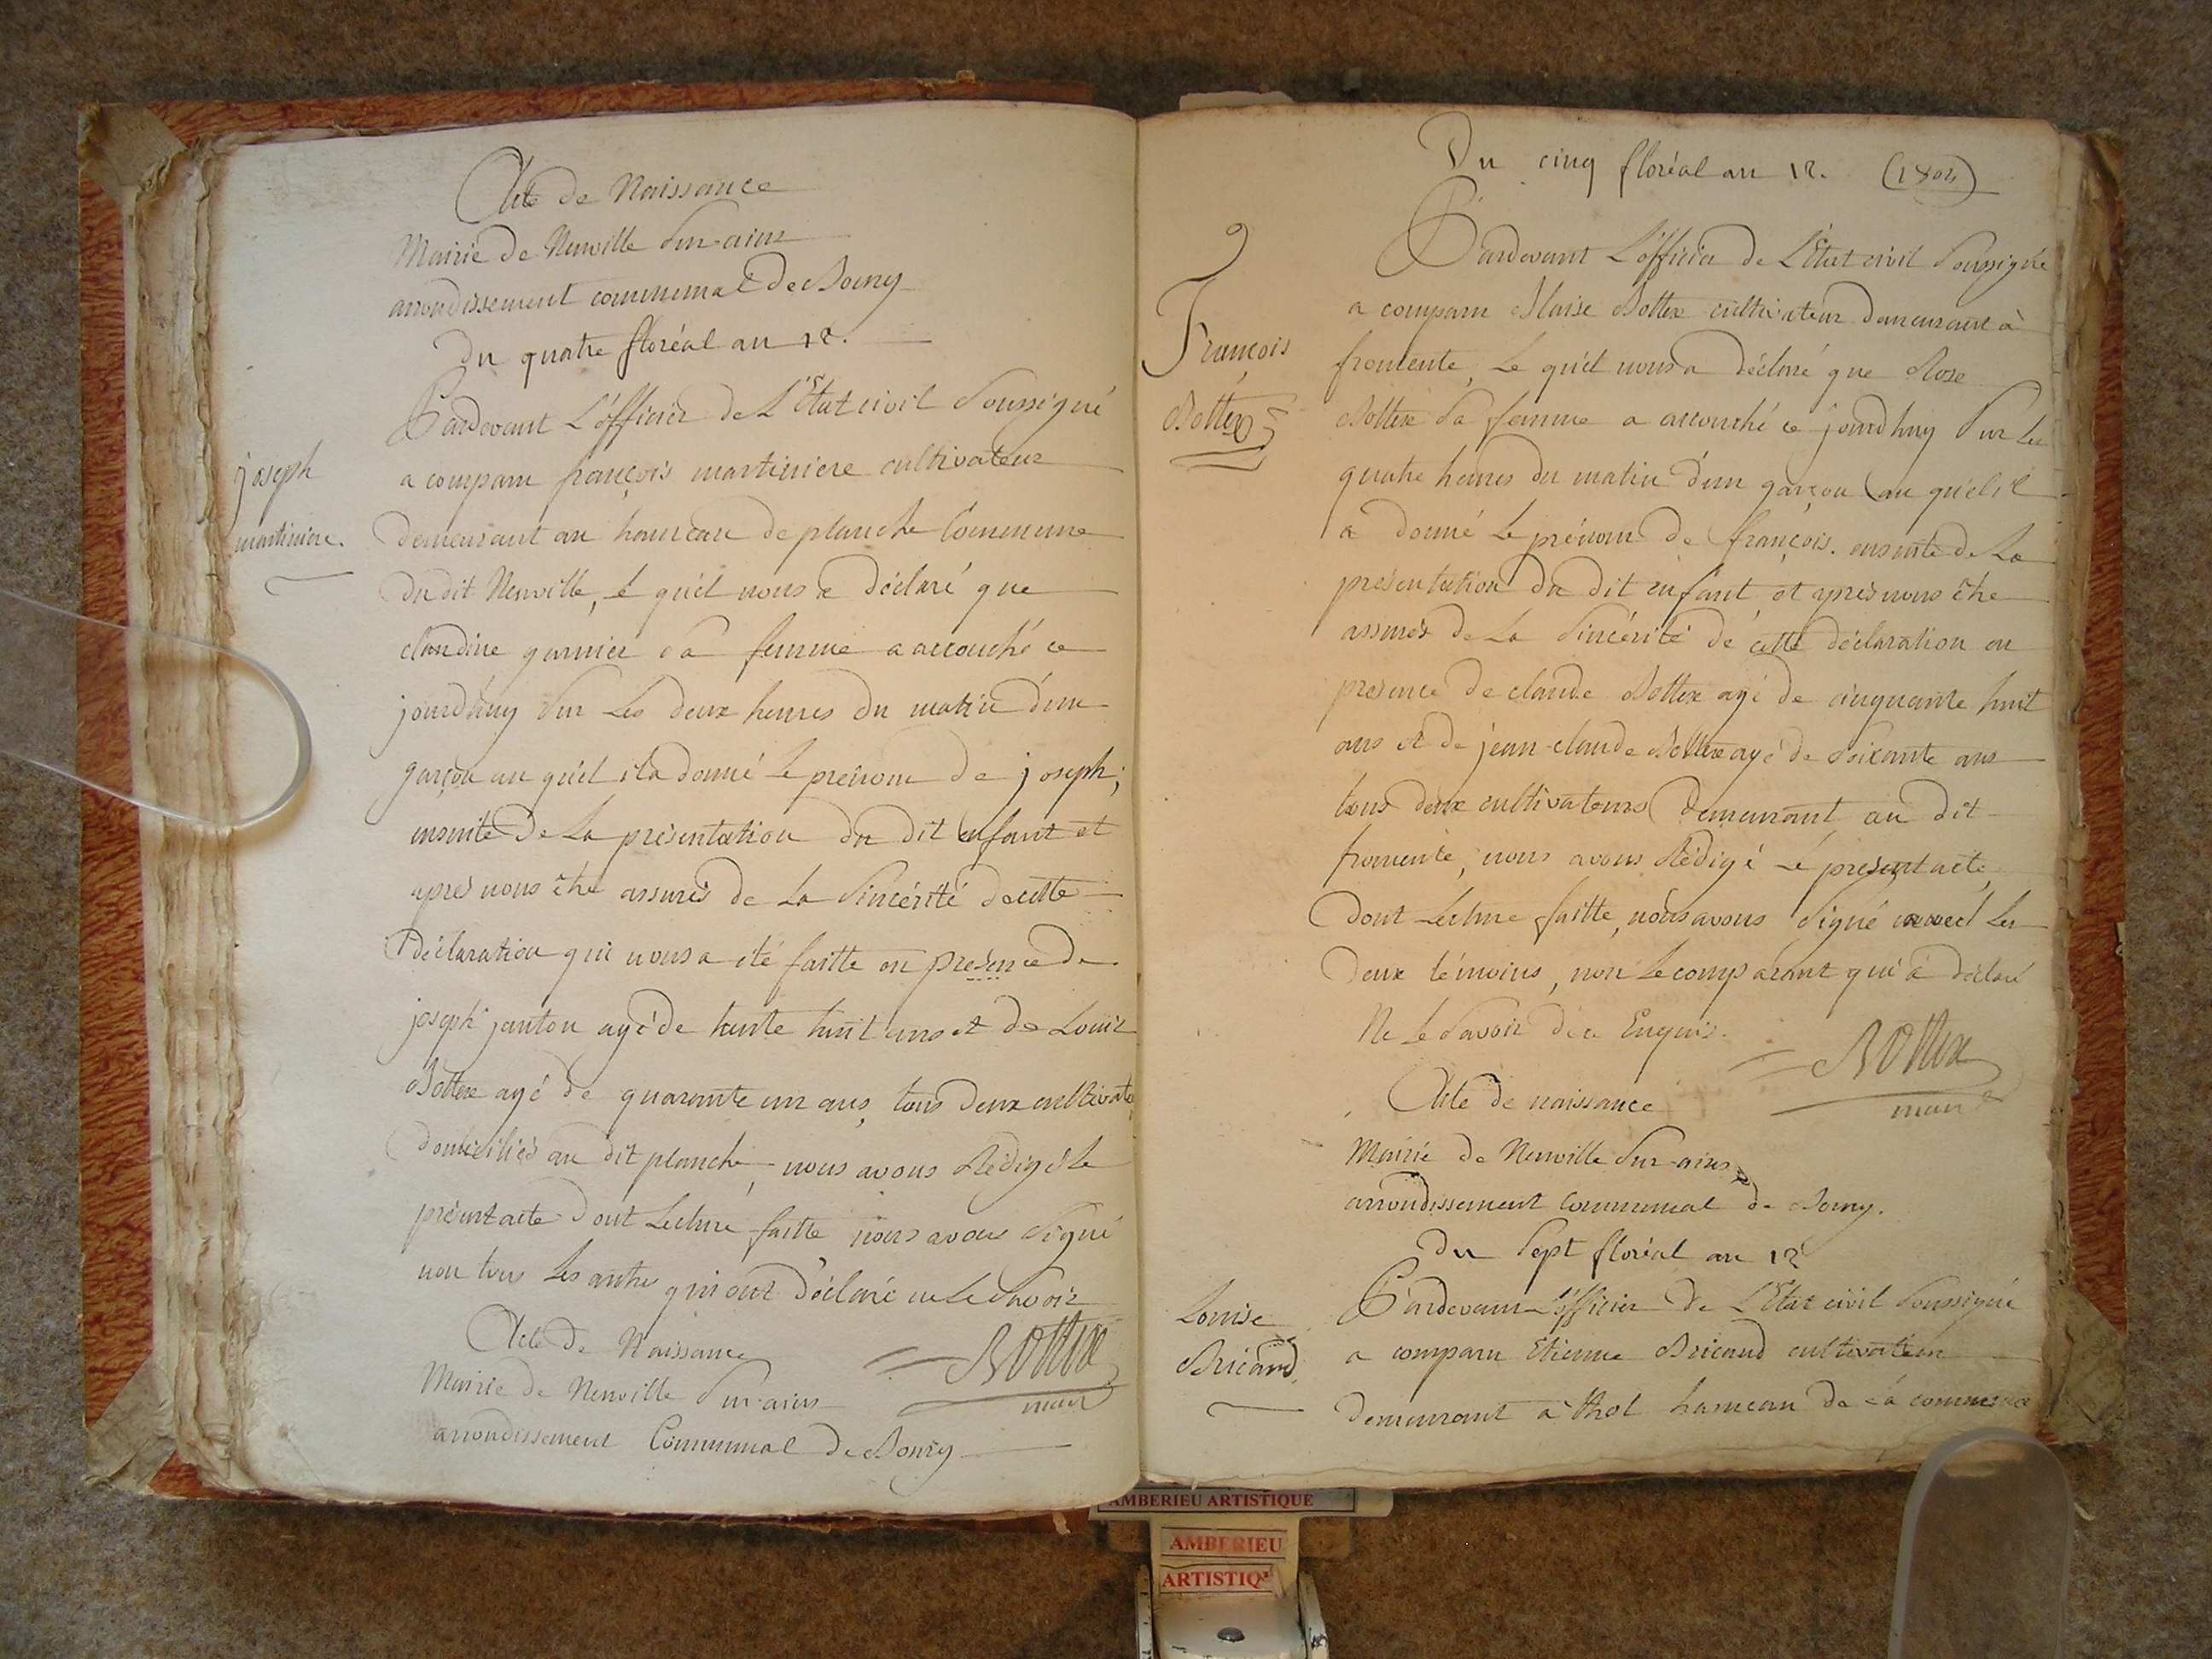 Acte de Naissance
Mairie de Neuville Sur-ains
arrondissement communal De Bourg
Du quatre floréal an 12.
Pardevant L'officier de L'Etat civil Soussigné
a comparu françois martiniere cultivateur
joseph
martiniere.
demeurant au hameau de planche Commune
du dit Neuville, le quél nous a déclaré que
claudine garnier sa femme a accouché ce
jourdhuy sur Les deux heures du matin d'un
garçon au quél il a donné Le prénom de joseph;
ensuite De La présentation du dit enfant et
aprés nous être assurés de La Sincérité de cette
déclaration qui nous a été faitte en presence de
joseph janton agé de trente huit ans et de Louis
Bottex agé de quarante un ans, tous deux cultivate
domiciliés au dit planche, nous avons Rédigé Le
présent acte dont Lecture faitte nous avons Signé
non tous Les autres qui ont déclaré ne Le Savoir
Bottex
maire
Acte De Naissance
Mairie de Neuville Sur-ains
arrondissement Communal De Bourg
Du cinq floréal an 12. (1804)
Pardevant L'officier de L'Etat civil Soussigné
a comparu Blaise Bottex cultivateur demeurant à
François
Bottex
fromente, Le quél nous a déclaré que Rose
Bottex Sa femme a accouché ce jourdhuy Sur Les
quatre heures du matin d'un garçon au quél il
a donné Le prénom de françois. ensuite de La
présentation du dit enfant et aprés nous être
assurés de La Sincérité de cette déclaration en
presence de claude Bottex agé de cinquante huit
ans et de jean-claude Bottex agé de Soixante ans
tous deux cultivateurs demeurant au dit
fromente, nous avons Rédigé Le présent acte,
dont Lecture faitte, nous avons Signé avec Les
deux témoins, non Le comparant qui à déclaré
Ne Le Savoir de ce Enquis.
Bottex
maire
Acte de naissance
Mairie de Neuville Sur-ains
arrondissement Communal de Bourg.
Du Sept floréal an 12
Louise
Bricand
Pardevant L'officier de L'Etat civil Soussigné
a comparu Etienne Bricand cultivateur
demeurant à thol hameau de la commune